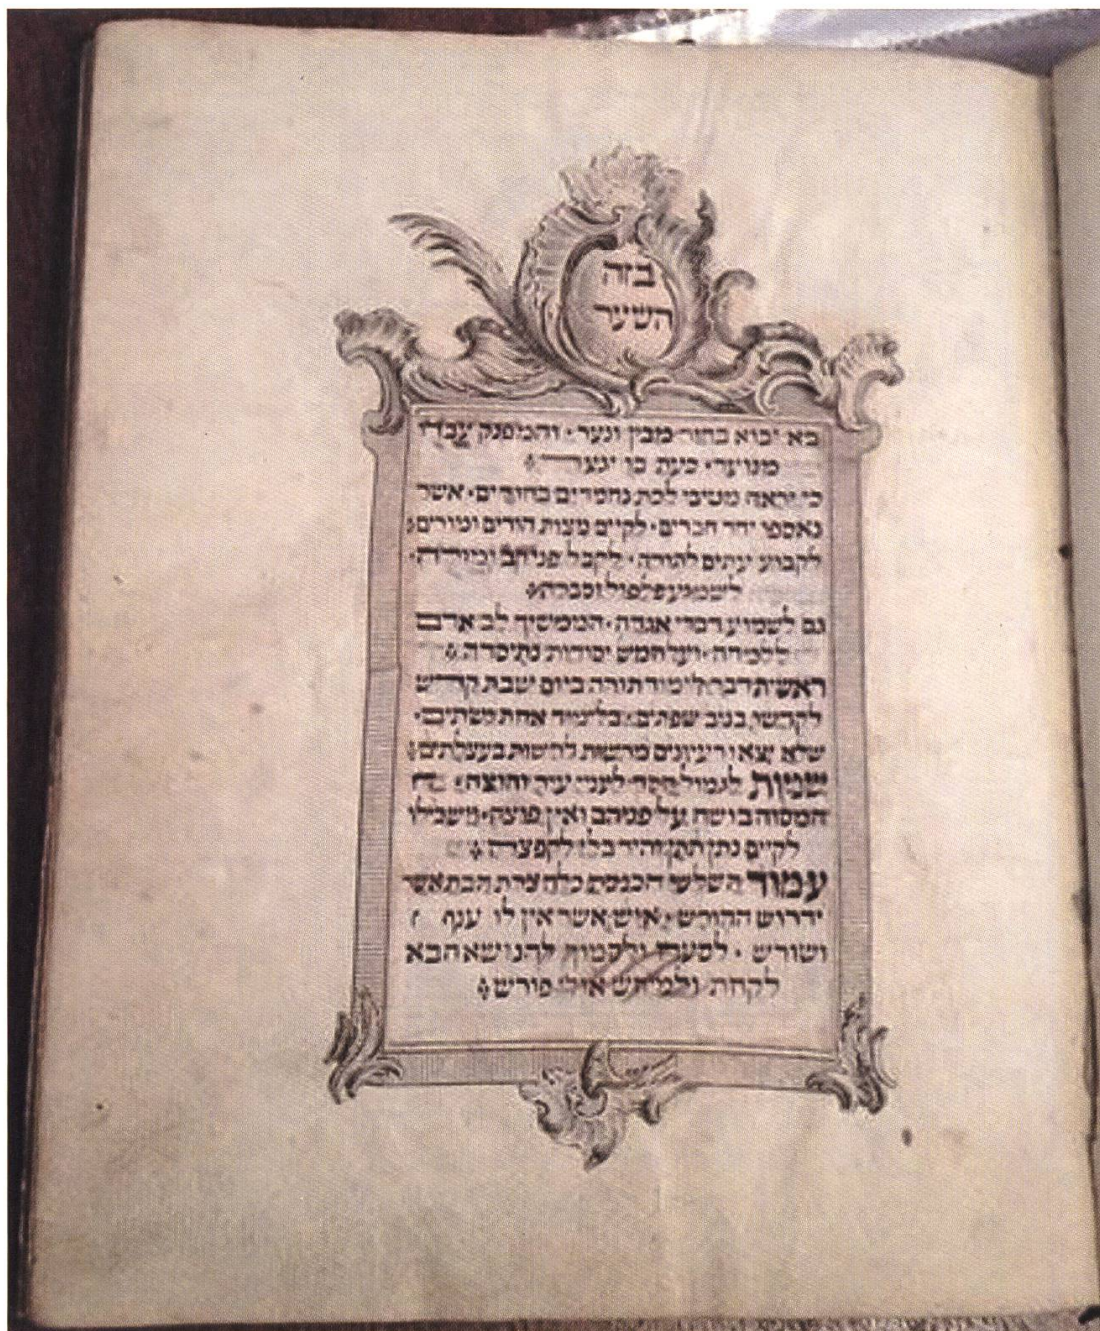 בזה
השער
בא יבוא בחור מבין ונער · והמפנק עבדו
מנוער · כעת בו יגער
כי יראה מטיבי לכת נחמדים בחורים · אשר
נאספו יחד חברים · לקיים מצות הורים ומורים
לקבוע עתים לתורה · לקבל פני רב ומורה ·
לשמוע פלפול וסברה
גם לשמוע דברי אגדה · המושיך לב אדם
ללמדה · ועל חמש יסודות נתיסדה
ראשית דבר לימוד תורה ביום שבת קודש
לקדשו בניב שפתים · בלימוד אחת ושתים ·
שלא יצאו רעיונים מרשות לרשות בעצלתים
שמות לגמול חסד לעני עיר וחוצה ·
המסוה בושה על פניהם ואין פוצה · משכילו
לקיים נתן תתן זהיר בלי להפצרה
עמוד השלישי הכנסת כלה צרת הבת אשר
ידרוש הדורש · איש אשר אין לו ענף
ושורש · לסעדו ולסמוך להנושא הבא
לקחת פורש